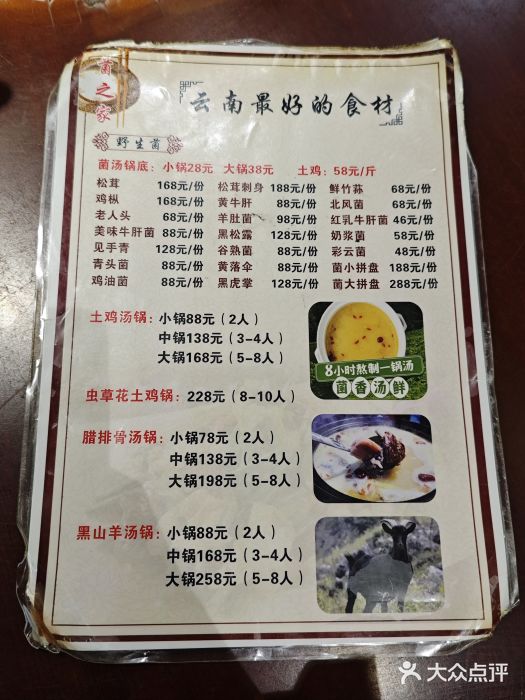 菌之家
云南最好的食材
野生菌
菌汤锅底：小锅28元 大锅38元 土鸡：58元/斤
松茸 168元/份 松茸刺身 188元/份 鲜竹荪 68元/份
鸡枞 168元/份 黄牛肝 88元/份 北风菌 68元/份
老人头 68元/份 羊肚菌 98元/份 红乳牛肝菌 46元/份
美味牛肝菌 88元/份 黑松露 128元/份 奶浆菌 58元/份
见手青 128元/份 谷熟菌 88元/份 彩云菌 48元/份
青头菌 88元/份 黄落伞 88元/份 菌小拼盘 188元/份
鸡油菌 88元/份 黑虎掌 128元/份 菌大拼盘 288元/份
土鸡汤锅：小锅88元（2人）
中锅138元（3-4人）
大锅168元（5-8人）
8小时熬制一锅汤
菌香汤鲜
虫草花土鸡锅：228元（8-10人）
腊排骨汤锅：小锅78元（2人）
中锅138元（3-4人）
大锅198元（5-8人）
黑山羊汤锅：小锅88元（2人）
中锅168元（3-4人）
大锅258元（5-8人）
大众点评